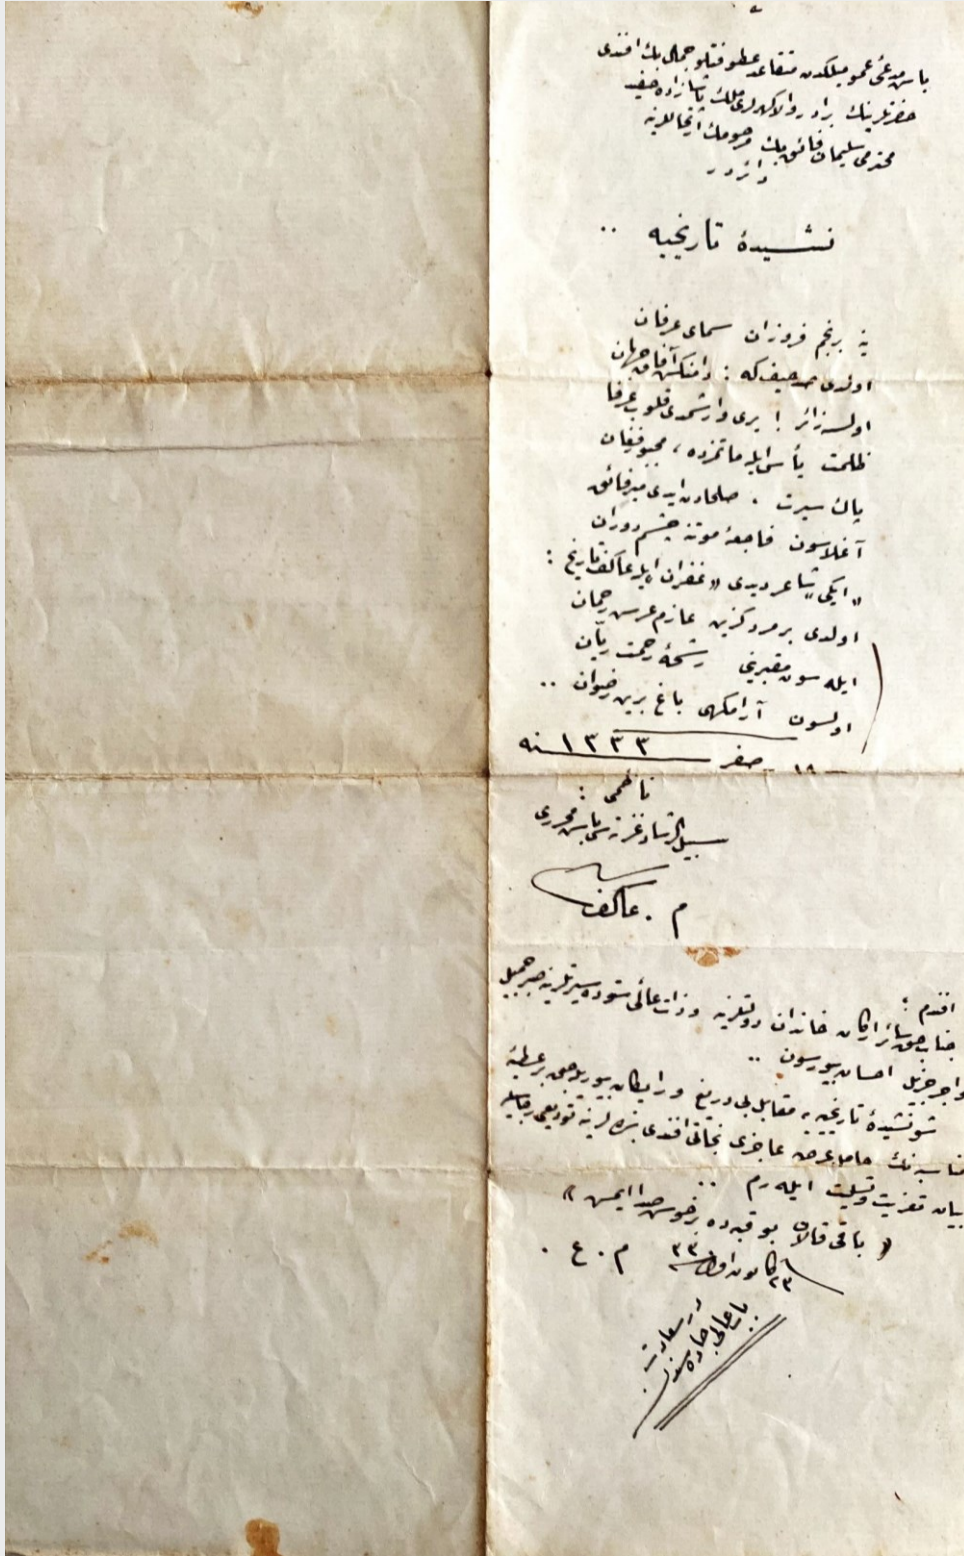 باش مدعئ عموميلكدن متقاعد عطوفتلو جمال بك افندى
حضرتلرينك برادر والاكهرلرى ملك پاشازاده حفيد
محترمى سليمان فائق بك مرحومك ارتحالارينه
دائردر
نشيدۀ تاريخيه ..
يه برنجم فروزان سماى عرفان
اولدى صد حيف كه : دامنكش آفاق جهان
اولسه زائر ! يرى وار شمدى قلوب عرفا
ظلمت يأس ايله ماتمزده ،
پاك سيرت . صلحادن ايدى مير فائق
آغلاسون فاجعۀ موتنه چشم دوران
"ايكى" شاعر ديدى "غفران" ايله عاكف تاريخ :
اولدى بر مرد كزين عازم عرس رحمان
ايله سون مقبرينى رشحۀ رحمت ريّان
اولسون آرامكهى باغ برين رضوان ..
١٨ صفر ١٣٣٣ سنه
ناظمى :
سبيل الرشاد غزته سى باش محررى
م . عاكف
افندم :
جناب حق سائر اركان خاندان دولتلرينه وذات عالئ ستوده سيرتلرينه صبر جميل
واجر جزيل احسان بيورسون ..
شو نشيدۀ تاريخيه يه مقابل بى دريغ ورايكان بيوريله جق بر عطيۀ
مناسبه نك حامل عرض عاجزى نجاتى افندى بنده لرينه توديعى رجاسيله
بيان تعزيت وتسليت ايله رم ..
« باقى قالان بو قبه ده بر خوش صدا ايمش »
٢٣ كانون اول ٣٣ م . ع .
در سعادت
باب عالى جاده سنده